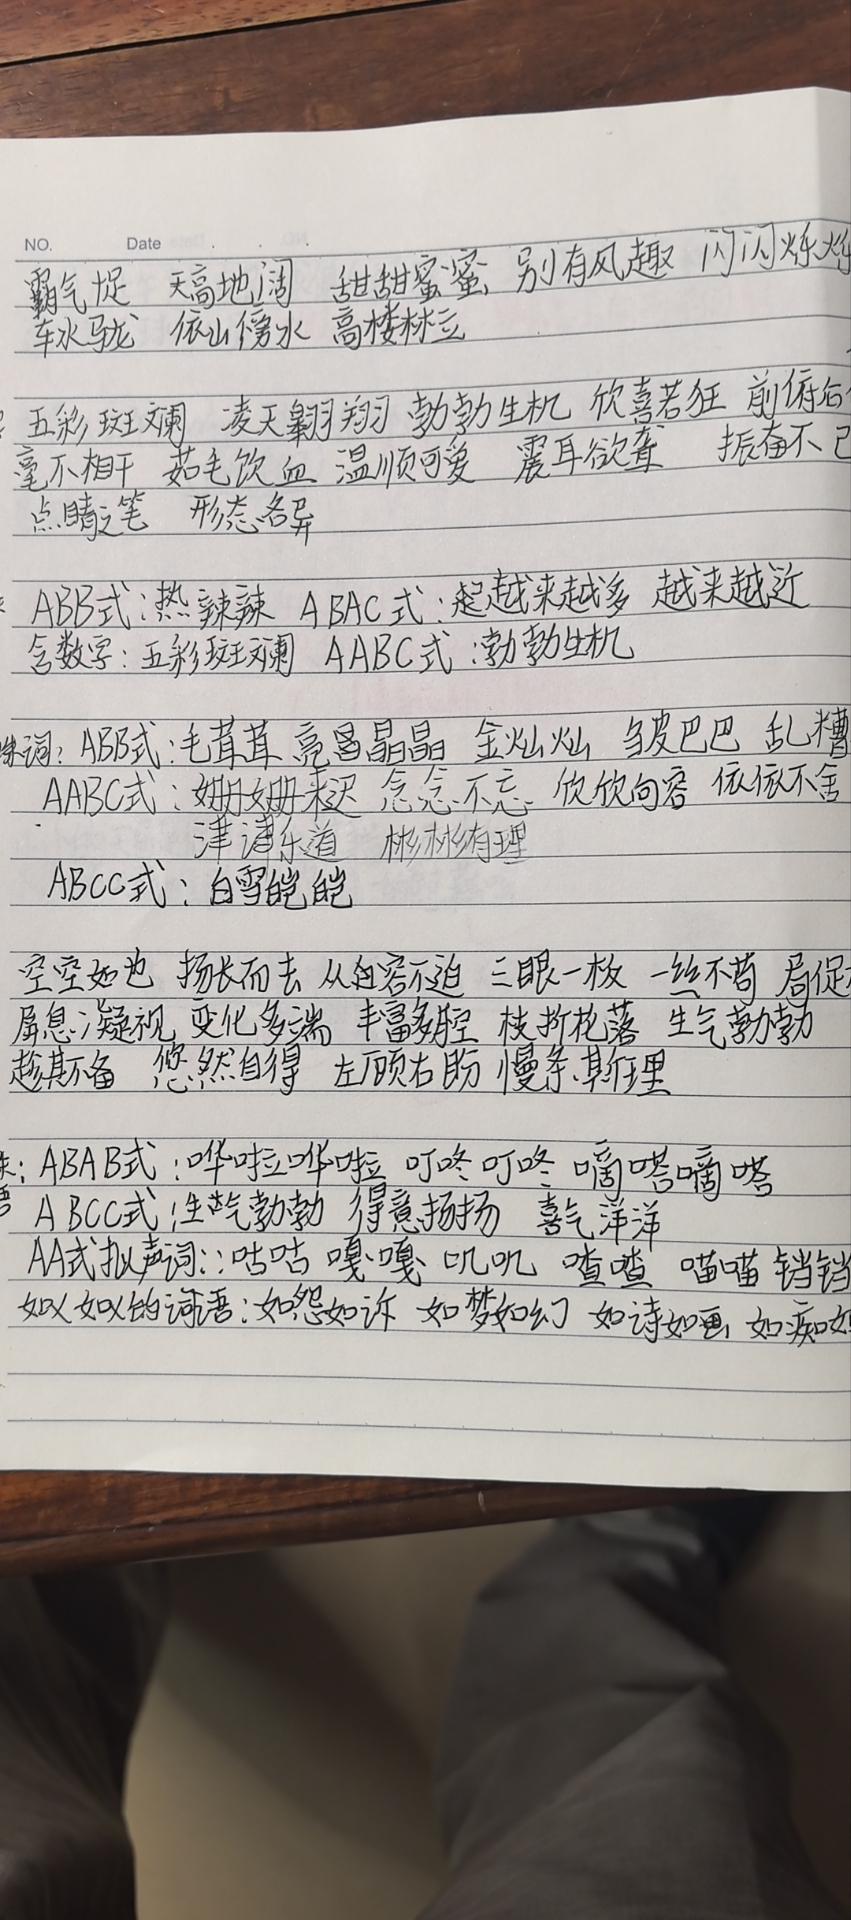 NO. Date
霸气 天高地阔 甜甜蜜蜜 别有风趣 闪闪烁烁
车水马龙 依山傍水 高楼林立
五彩斑斓 凌天翱翔 勃勃生机 欣喜若狂 前俯后
毫不相干 茹毛饮血 温顺可爱 震耳欲聋 振奋不已
点睛之笔 形态各异
ABB式:热辣辣 ABAC式:越来越多 越来越近
含数字:五彩斑斓 AABC式:勃勃生机
词:ABB式:毛茸茸 亮晶晶 金灿灿 皱巴巴 乱糟
AABC式:姗姗来迟 念念不忘 欣欣向容 依依不舍
津津乐道 彬彬有理
ABCC式:白雪皑皑
空空如也 扬长而去 从容不迫 三眼一板 一丝不苟 局促
屏息凝视 变化多端 丰富多腔 枝折花落 生气勃勃
趁其不备 悠然自得 左顾右盼 慢条斯理
ABAB式:哗啦哗啦 叮咚叮咚 嘀嗒嘀嗒
ABCC式:生气勃勃 得意扬扬 喜气洋洋
AA式拟声词::咕咕 嘎嘎 叽叽 喳喳 喵喵 铛铛
如X如X的词语:如怨如诉 如梦如幻 如诗如画 如痴如